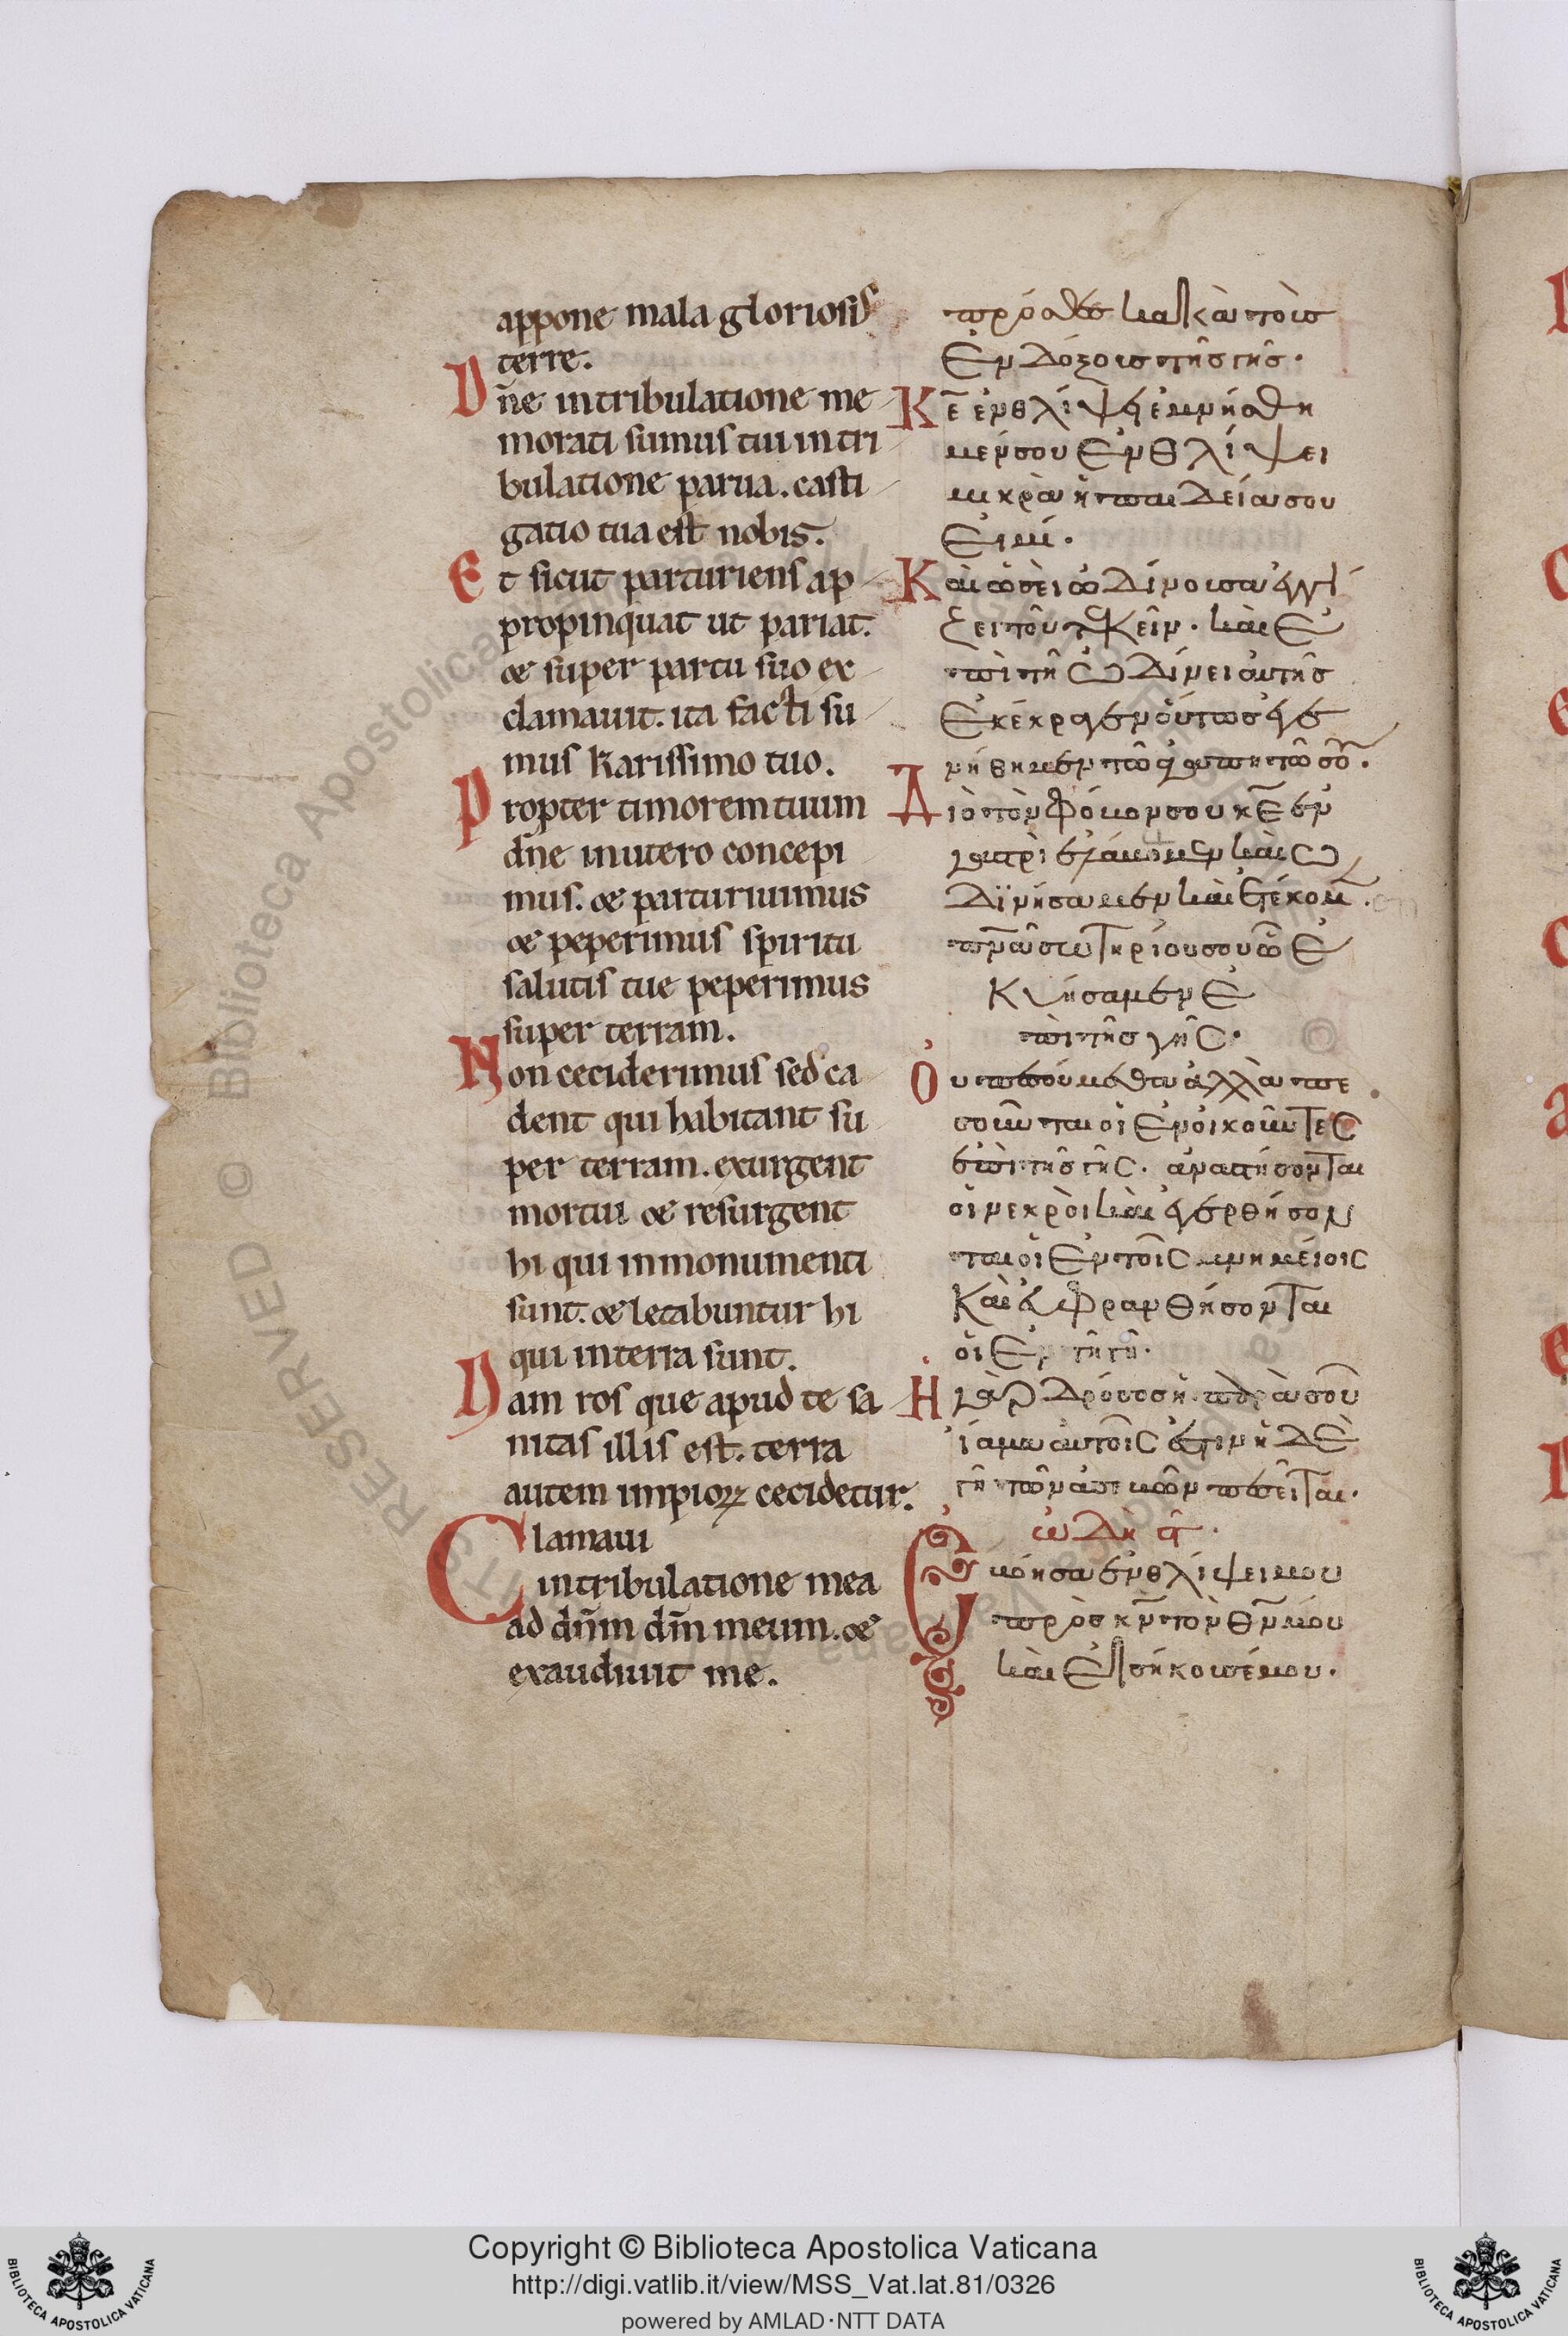 appone mala gloriosis
terre.
Dñe in tribulatione me
morati sumus tui in tri
bulatione parua. casti
gatio tua est nobis.
Et sicut parturiens ap
propinquat ut pariat.
& super partu suo ex
clamauit. ita facti su
mus karissimo tuo.
Propter timorem tuum
dñe in utero concepi
mus. & parturiuimus
& peperimus spiritu
salutis tue peperimus
super terram.
Non ceciderimus sed ca
dent qui habitant su
per terram. exurgent
mortui & resurgent
hi qui in monumenti
sunt. & letabuntur hi
qui in terra sunt.
Nam ros que apud te sa
nitas illis est. terra
autem impioꝝ cecidetur.
Clamaui
in tribulatione mea
ad dñm dm̄ meum. &
exaudiuit me.
πρόσθες κακὰ τοῖς
ἐνδόξοις τῆς γῆς.
Κε̄ ἐν θλίψει ἐμνήσθη
μέν σου ἐν θλίψει
μικρᾶ ἡ παιδεία σου
Καὶ ὡσεὶ ὠδίνουσα ἐγγί
ζει τοῦ τεκεῖν. καὶ ἐ
πὶ τῆ ὠδίνει αὐτῆς
ἐκέκραξεν οὕτως ἐγε
νήθημεν τῶ ἀγαπητῶ σου.
Διὰ τὸν φόβον σου κε̄ ἐν
γαστρὶ ἐλάβομεν καὶ ὠ
δινήσαμεν καὶ ἐτέκομεν.
πνᾶ σωτηρίου σου ὃ ἐ
κυήσαμεν ἐ
πὶ τῆς γῆς.
Οὐ πεσούμεθα ἀλλὰ πε
σοῦνται οἱ ἐνοικοῦντες
ἐπὶ τῆς γῆς. ἀναστήσονται
οἱ νεκροὶ καὶ ἐγερθήσον
ται οἱ ἐν τοῖς μνημείοις
καὶ εὐφρανθήσονται
οἱ ἐν τῆ γῆ.
Ἡ γὰρ δρόσος ἡ παρὰ σοῦ
ἴαμα αὐτοῖς ἐστιν ἡ δὲ
γῆ τῶν ἀσεβῶν πεσεῖται.
ὠδὴ ϛ.
Ἐβόησα ἐν θλίψει μου
πρὸς κν̄ τὸν θν̄ μου
καὶ εἰσήκουσέ μου.
Copyright © Biblioteca Apostolica Vaticana
http://digi.vatlib.it/view/MSS_Vat.lat.81/0326
powered by AMLAD·NTT DATA
BIBLIOTECA APOSTOLICA VATICANA
BIBLIOTECA APOSTOLICA VATICANA